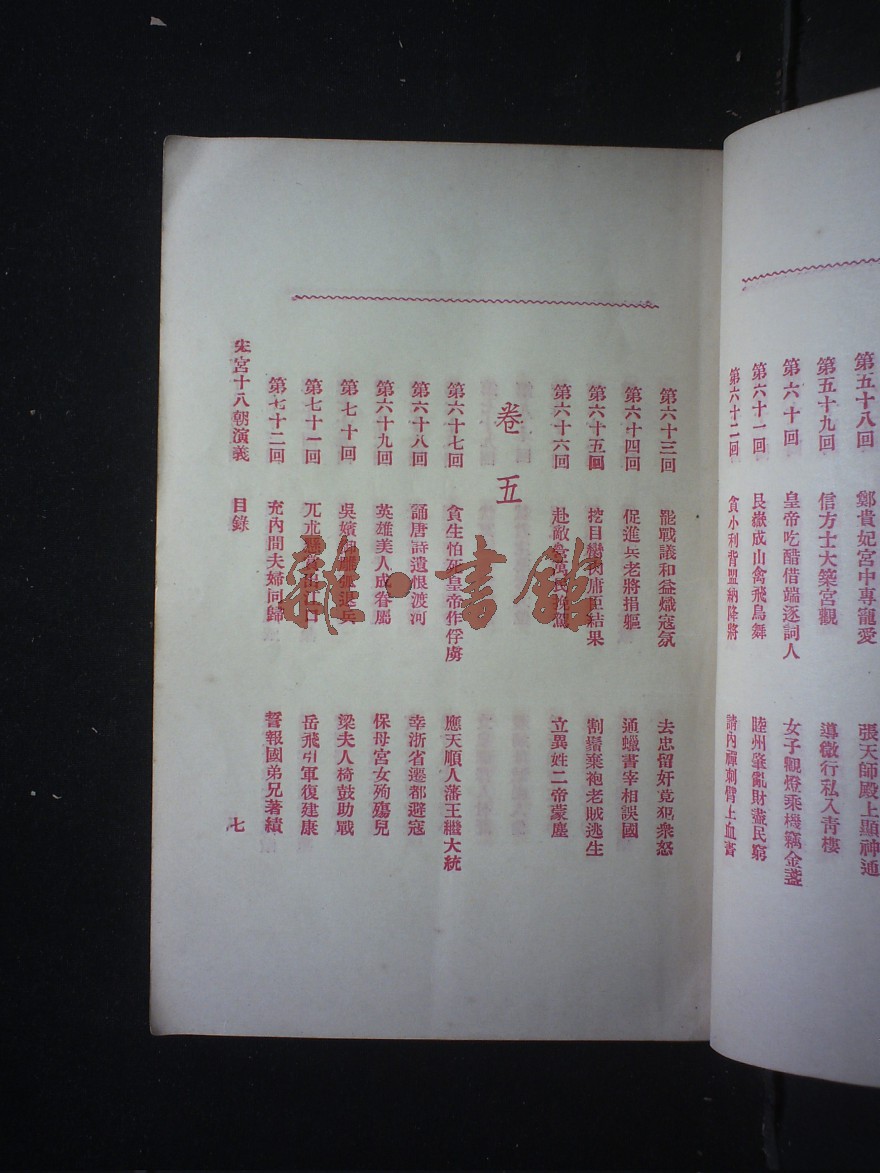 第五十八回 鄭貴妃宮中專寵愛 張天師殿上顯神通
第五十九回 信方士大築宮觀 導微行私入青樓
第六十回 皇帝吃醋借端逐詞人 女子觀燈乘機竊金盞
第六十一回 艮嶽成山禽飛鳥舞 睦州肇亂財盡民窮
第六十二回 貪小利背盟納降將 請內禪刺臂上血書
第六十三回 罷戰議和益熾寇氛 去忠留奸竟犯衆怒
第六十四回 促進兵老將捐軀 通蠟書宰相誤國
第六十五回 挖目 庸臣結果 割鬚棄袍老賊逃生
第六十六回 赴敵 立異姓二帝蒙塵
卷五
第六十七回 貪生怕死皇帝作俘虜 應天順人藩王繼大統
第六十八回 誦唐詩遺恨渡河 幸浙省遷都避寇
第六十九回 英雄美人成眷屬 保母宮女殉殤兒
第七十回 吳嬪 兵 梁夫人桴鼓助戰
第七十一回 兀朮 岳飛引軍復建康
第七十二回 充內間夫婦同歸 誓報國弟兄著績
宋宮十八朝演義 目錄 七
雜·書館